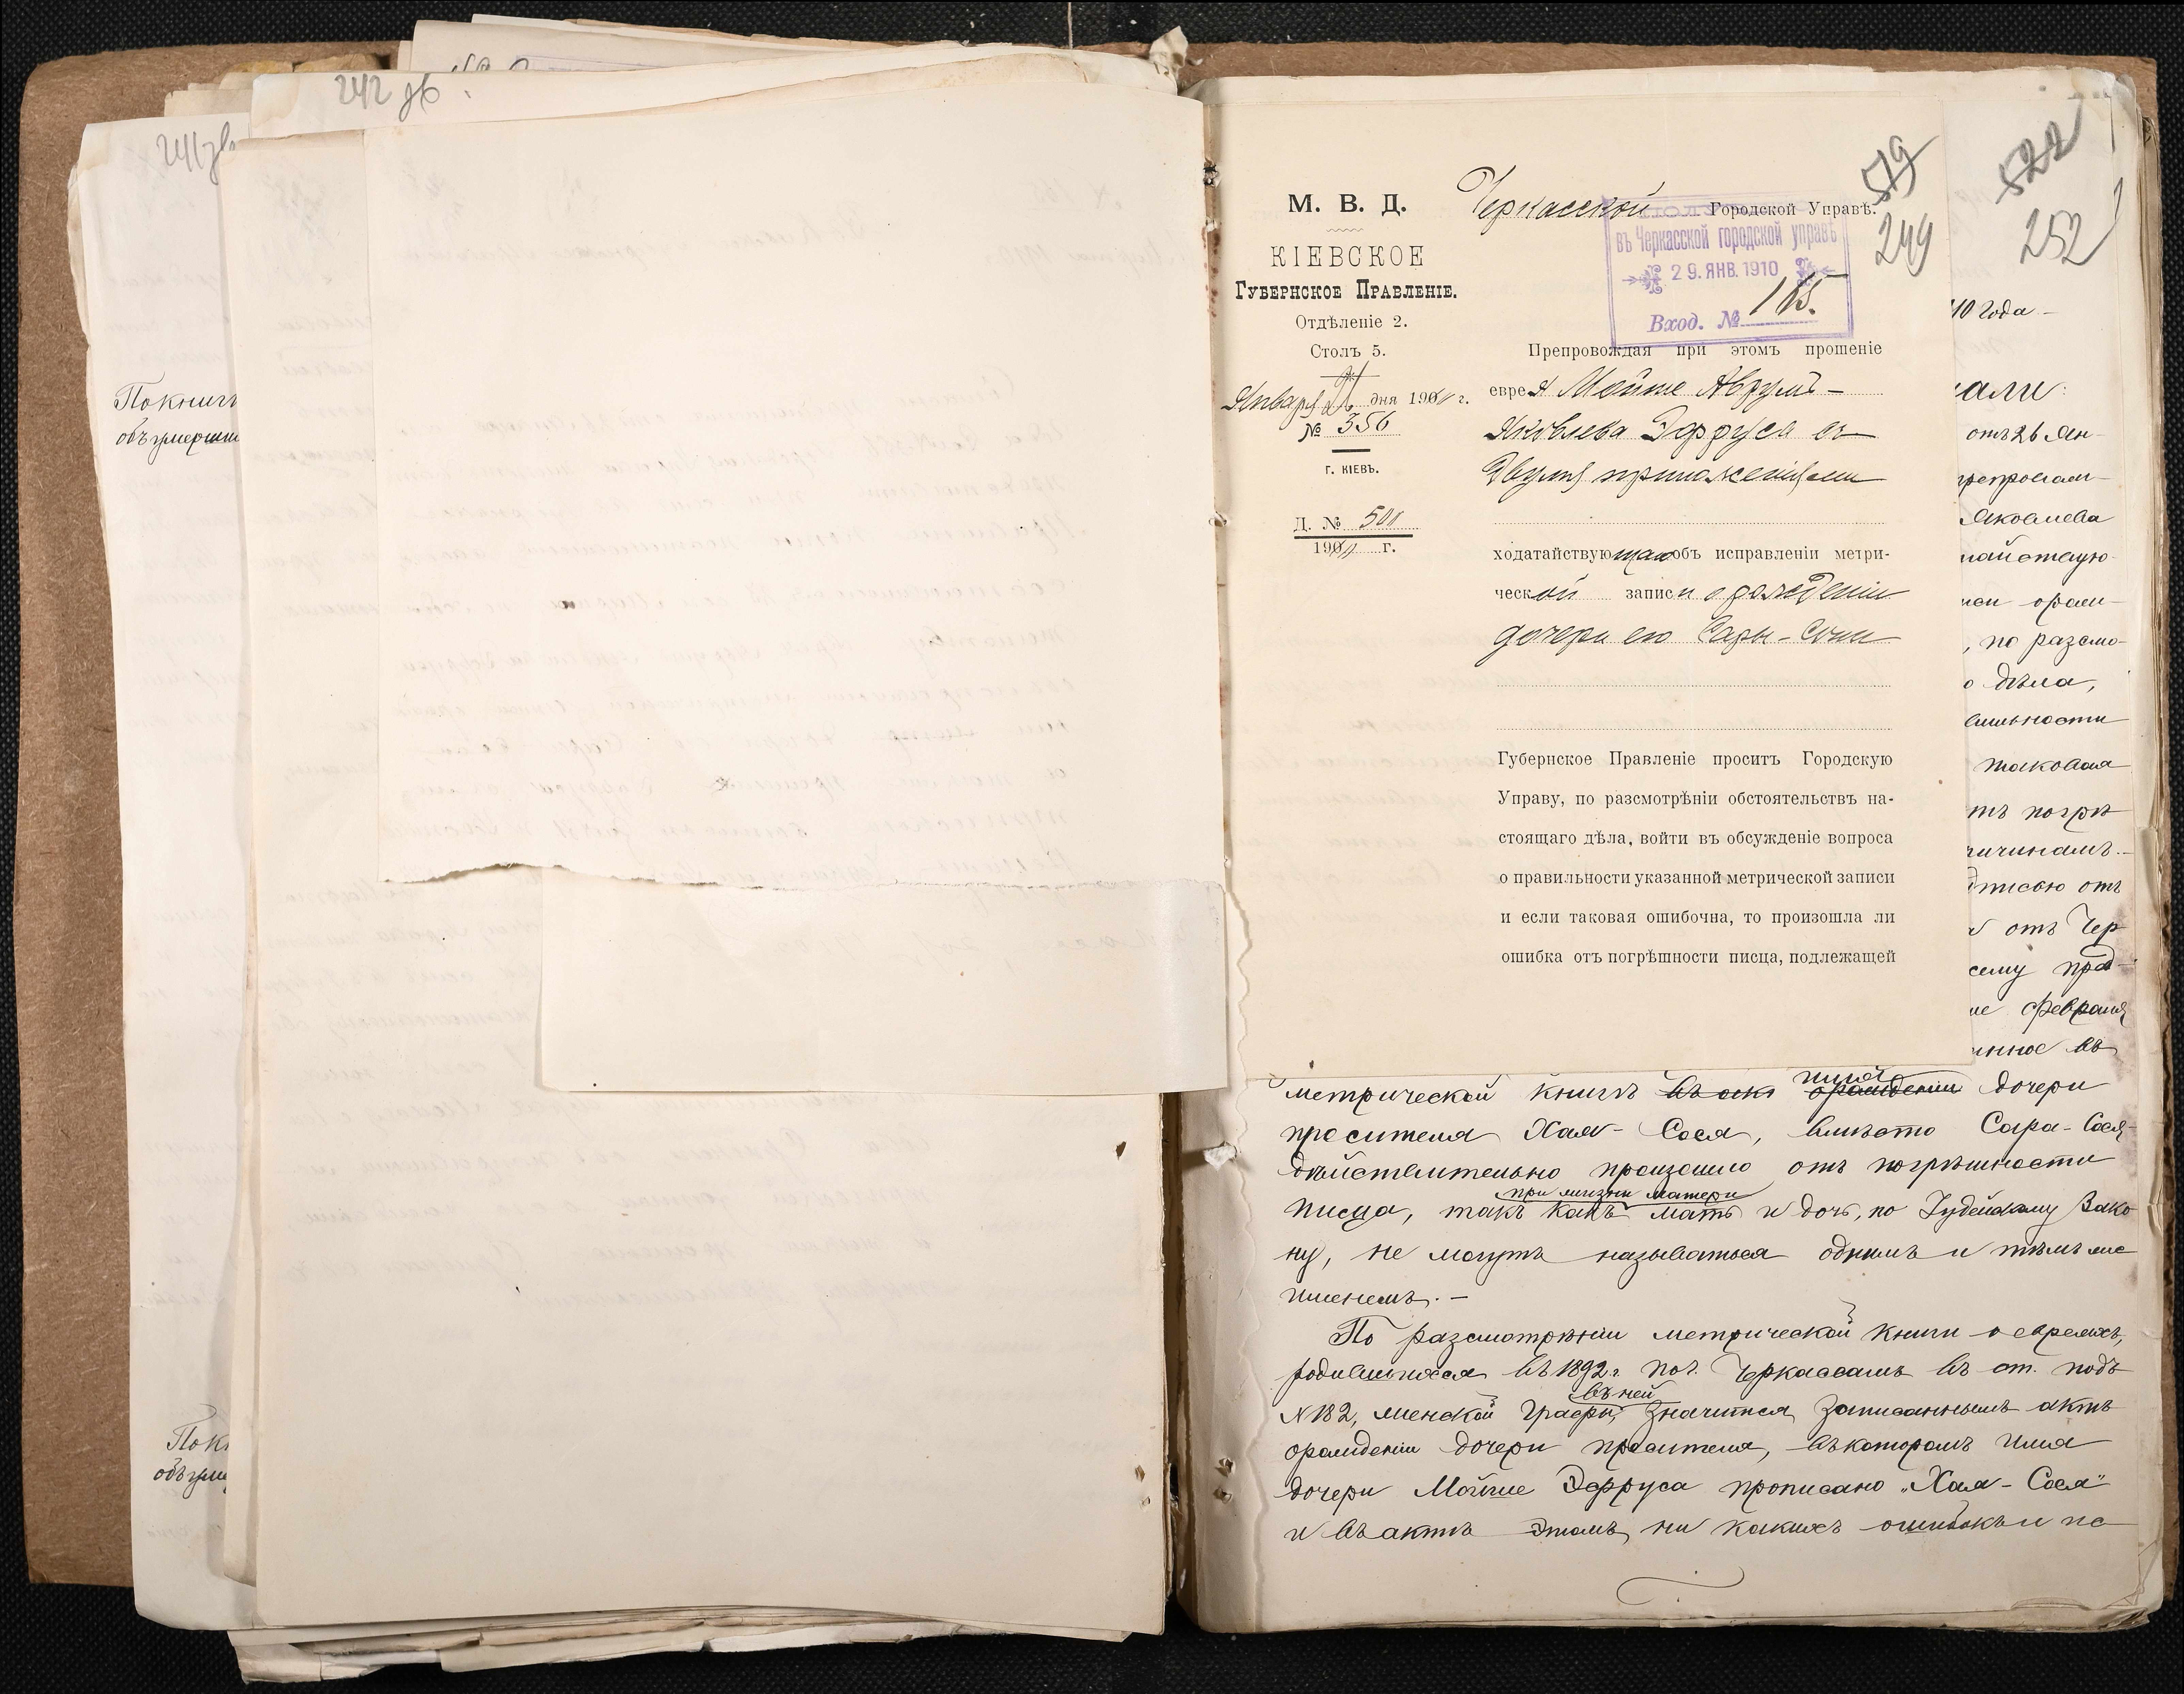 242 об
241 об
По книгѣ
объ умерши
По кн
объ уме
М. В. Д.
КІЕВСКОЕ
Губернское Правленіе.
Отдѣленіе 2.
Столъ 5.
Января 26 дня 190 г.
№ 356
г. КІЕВЪ.
Д. № 501
190 г.
Черкасской Городской Управѣ.
въ Черкасской городской управѣ
29. ЯНВ. 1910
Вход. № 165.
519
249
522
252
Препровождая при этомъ прошеніе
еврея Мойше Аврумъ-
Яковлева Эфруса съ
двумя приложеніями
ходатайствующаго объ исправленіи метри-
ческой записи о рожденіи
дочери его Сары-Соси
Губернское Правленіе проситъ Городскую
Управу, по разсмотрѣніи обстоятельствъ на-
стоящаго дѣла, войти въ обсужденіе вопроса
о правильности указанной метрической записи
и если таковая ошибочна, то произошла ли
ошибка отъ погрѣшности писца, подлежащей
10 года -
али:
отъ 26 Ян-
препровож-
Яковлева
тайствую-
иси о рож-
, по разсмо-
о дѣла,
вильности
таковая
тъ погрѣ
ричинамъ.-
дписью отъ
и отъ Чер
сему пред-
ие февраля
нное въ
метрической книгѣ въ акт имя о рожденіи дочери
просителя Хая-Сося, вмѣсто Сара-Сося-
дѣйствительно произошло отъ погрѣшности
при жизни матери
писца, такъ какъ мать и дочь, по Іудейскому Зако
ну, не могутъ называться однимъ и тѣмъ же
именемъ. -
По разсмотрѣніи метрической книги о евреяхъ,
родившихся въ 1892 г. по г. Черкассамъ въ ст. подъ
въ ней
№ 182, женской графы, значится записаннымъ актъ
о рожденіи дочери просителя, въ которомъ имя
дочери Мойше Эфруса прописано "Хая-Сося"
и въ актѣ этомъ ни какихъ ошибокъ и по